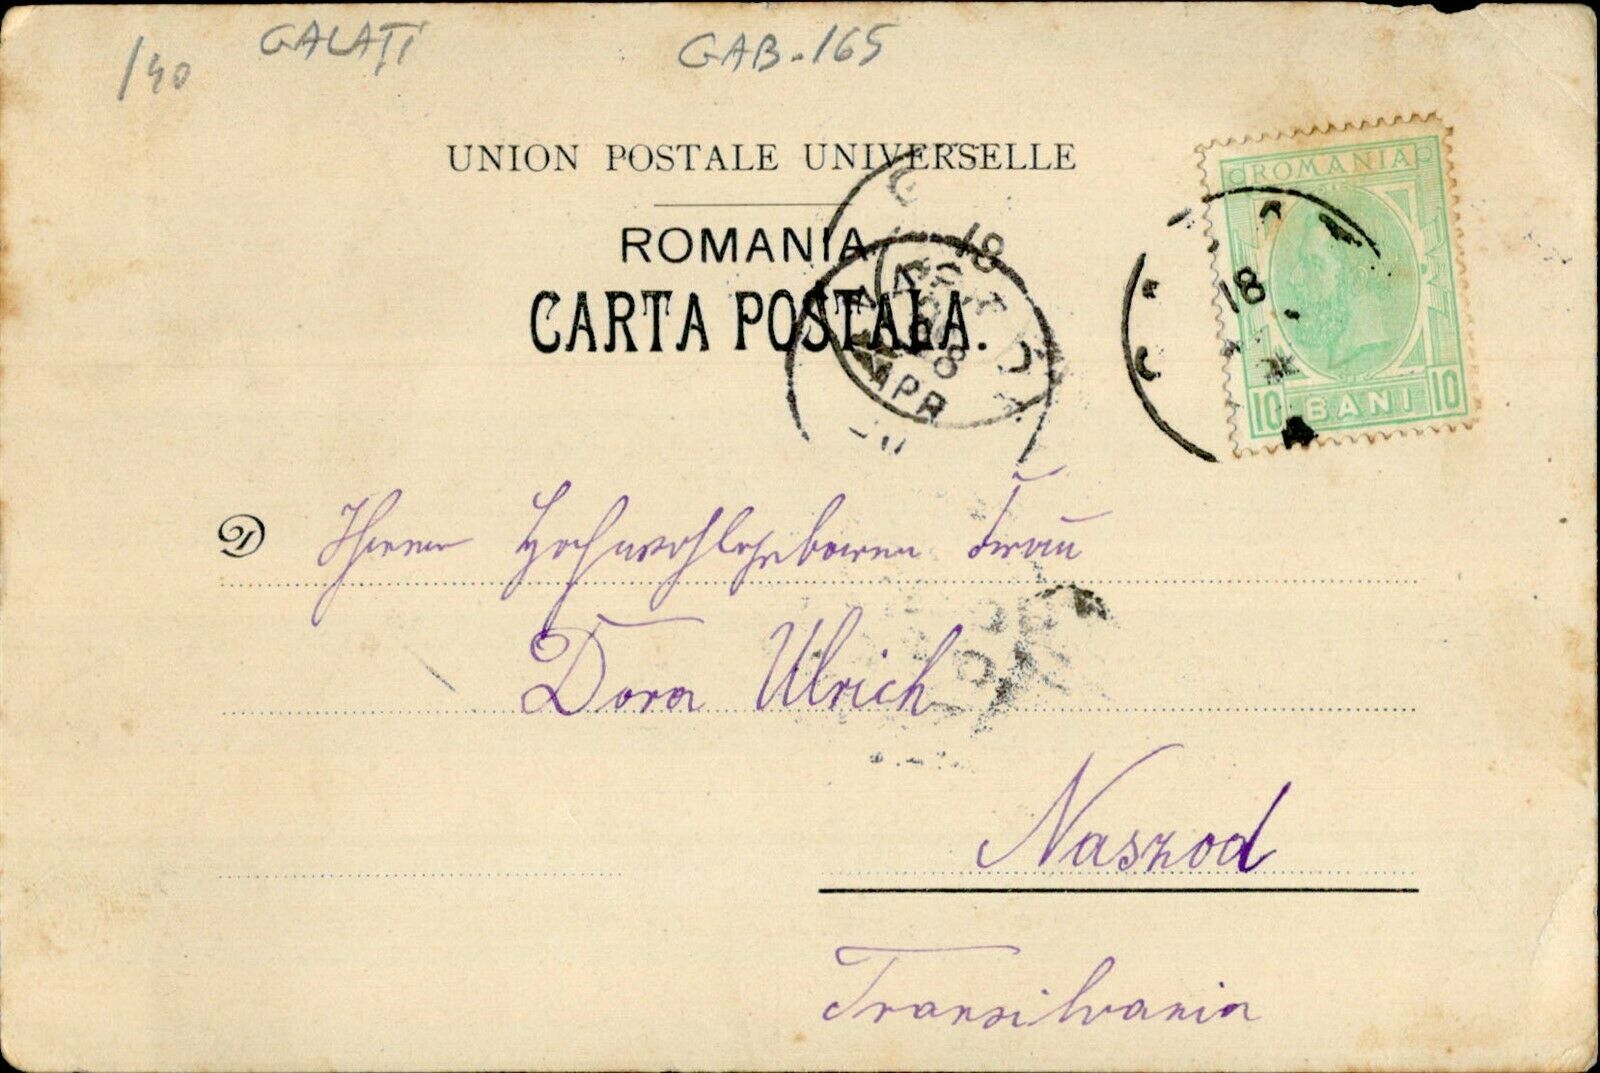 /40 GALAȚI GAB-165
UNION POSTALE UNIVERSELLE
ROMANIA
CARTA POSTALA.
ROMANIA
10 BANI 10
18
18
APR
D
Hochwohlgeboren Frau
Dora Ulrich
Naszod
Transilvania